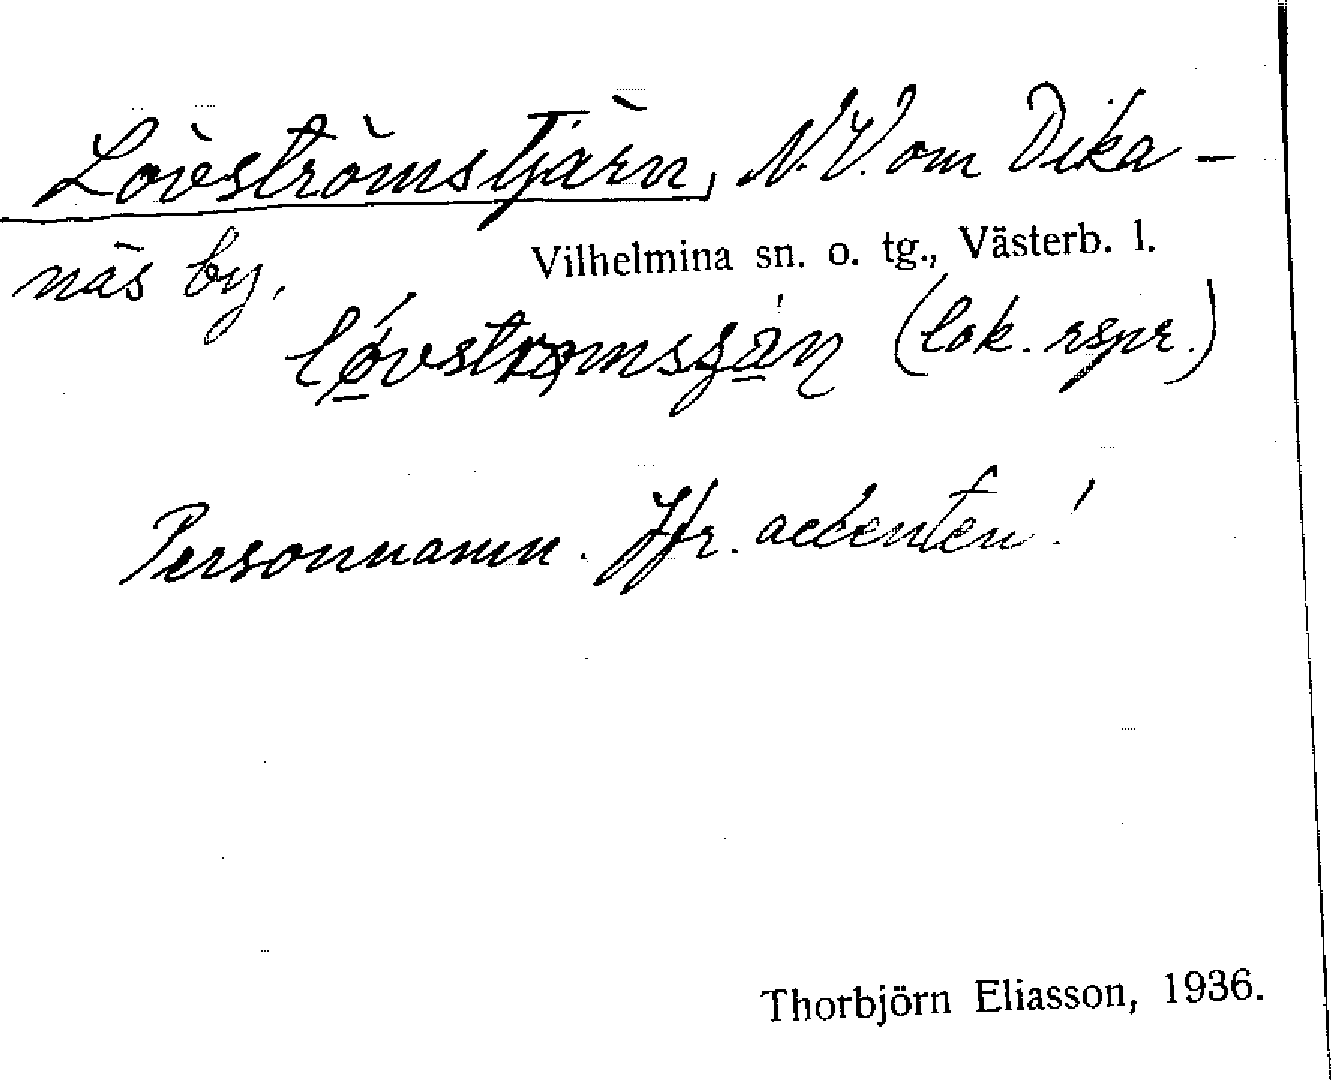 Lövströmstjärn, N.V. om Dika-
näs by, Vilhelmina sn. o. tg., Västerb. l.
(lok. rspr.)
Personnamn. Jfr. accenten!
Thorbjörn Eliasson, 1936.